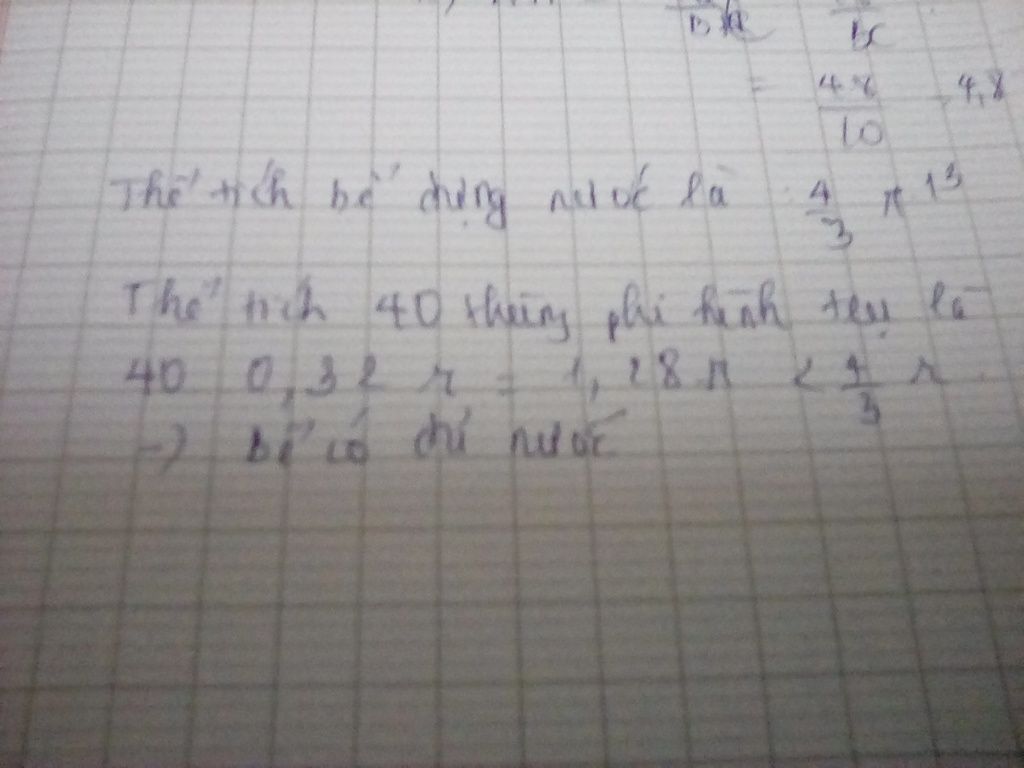 = 48/10 = 4,8
Thể tích bể đựng nước là 4/3 π 1³
Thể tích 40 thùng phi hình trụ là
40 0,32 π = 1,28 π < 4/3 π
→ bể có đủ nước